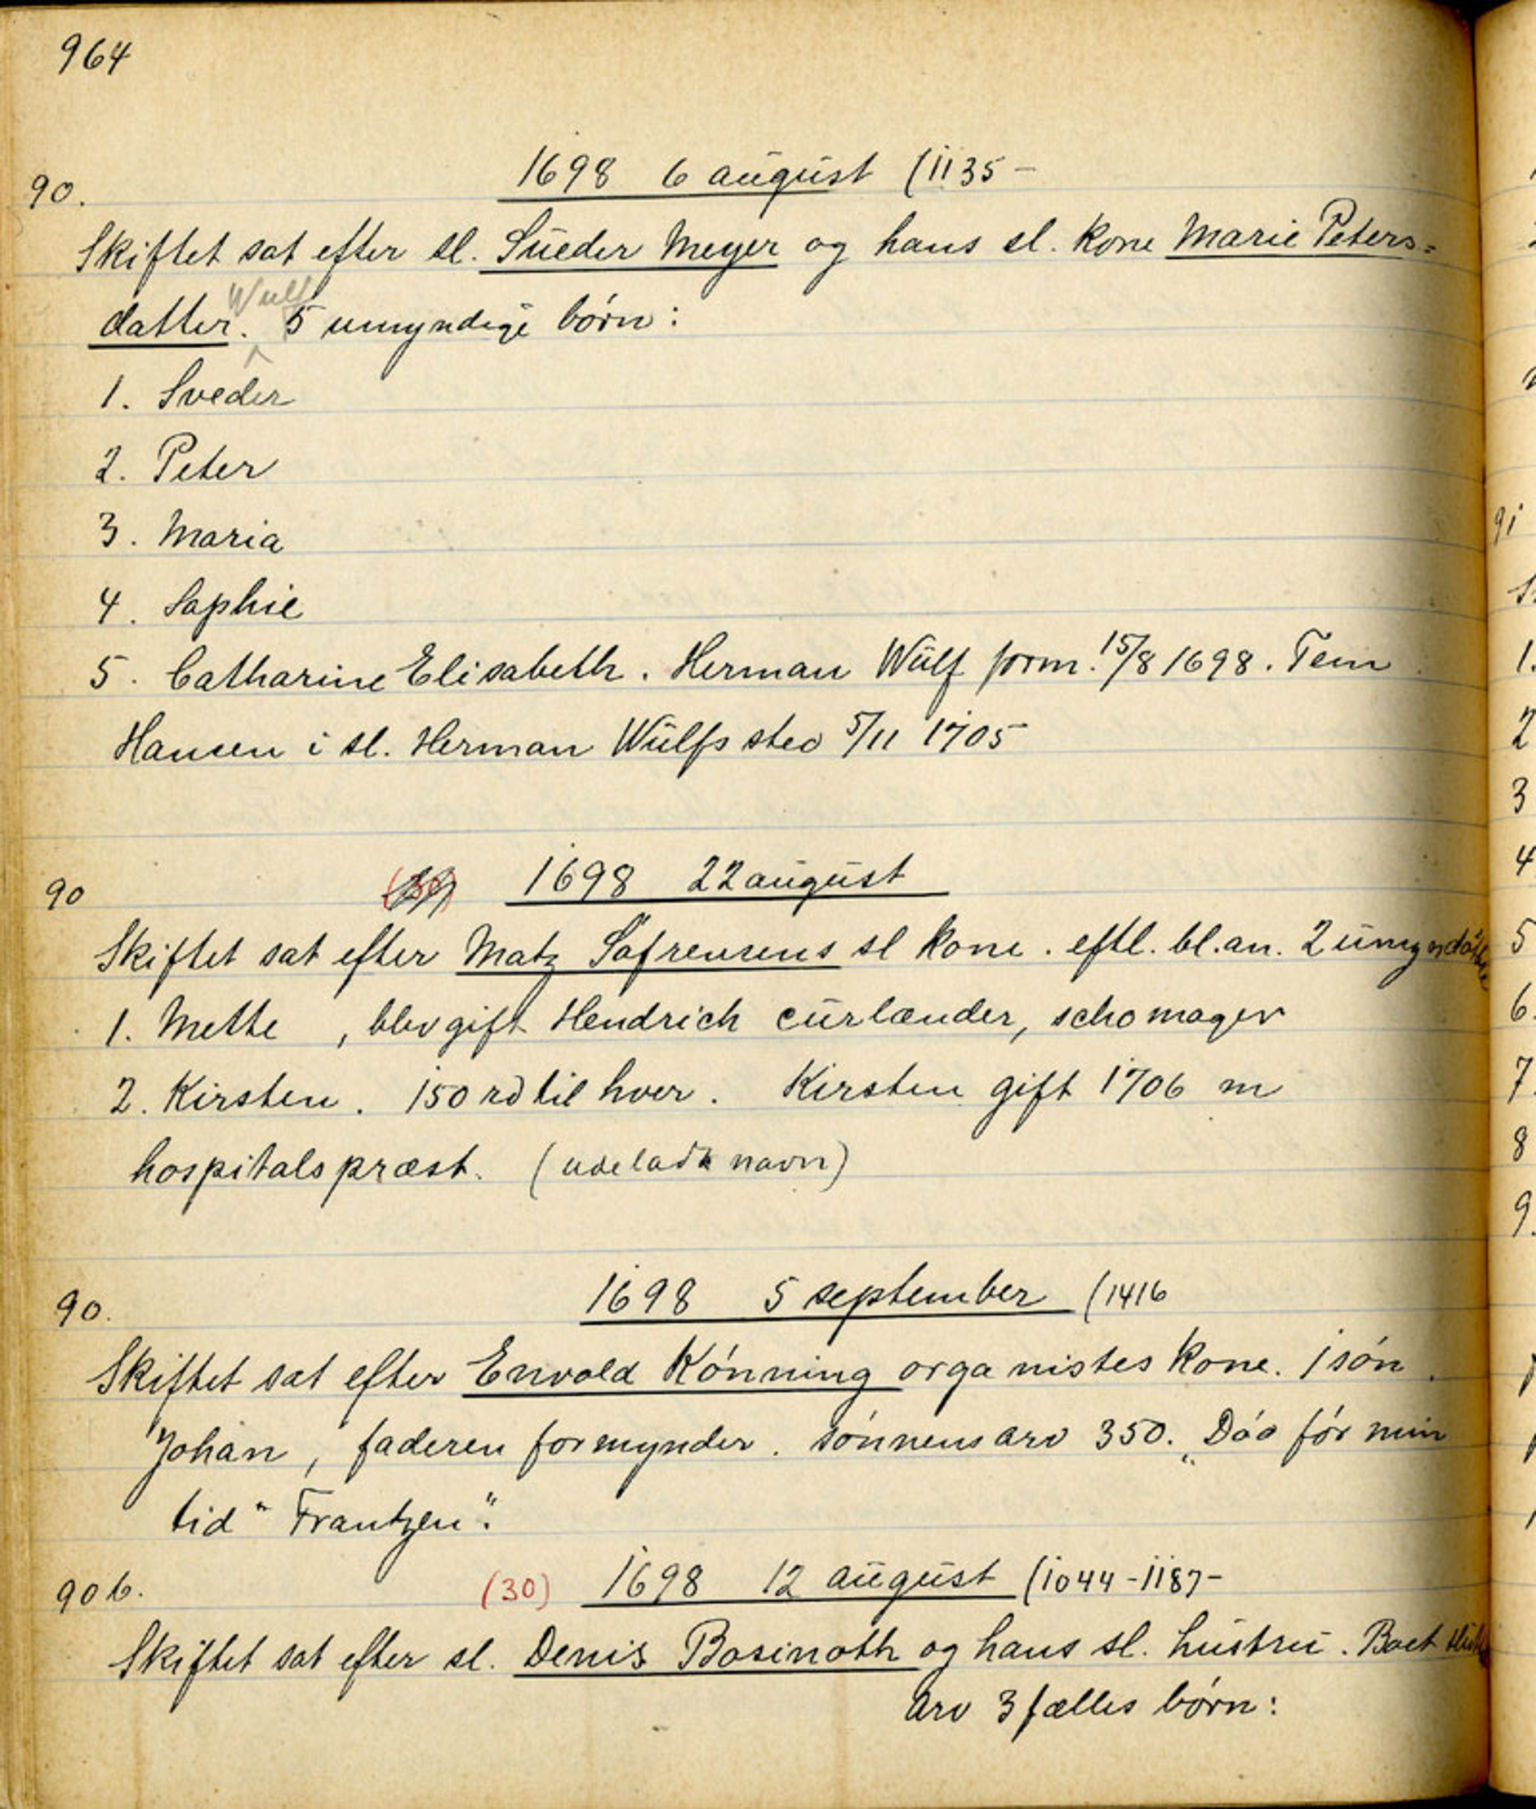 964
90. 1698 6 august (1135-
Skiftet sat efter sl. Sueder Meyer og hans sl. kone Marie Peters=
Wulf
datter. 5 umyndige børn:
1. Sveder
2. Peter
3. Maria
4. Sophie
5. Catharine Elisabeth. Herman Wulf form. 15/8 1698. Tem
Hansen i sl. Herman Wulfs sted 5/11 1705
90 1698 22 august
Skiftet sat efter Matz Søfrensens sl kone. eftl. bl. an. 2 umynd
1. Mette , blev gift Hendrich curlænder, schomager
2. Kirsten. 150 rd til hver. Kirsten gift 1706 m
hospitalspræst. (udeladt navn)
90. 1698 5 september (1416
Skiftet sat efter Envold Kønning organistes kone. 1 søn.
Johan, faderen formynder. sønnens arv 350. „Død før min
tid" Frantzen".
90 b. (30) 1698 12 august (1044-1187-
Skiftet sat efter sl. Denis Bosinoth og hans sl. hustru. Boet
Arv 3 fælles børn: